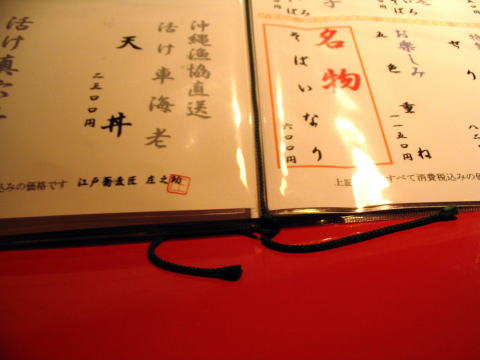 お楽しみ
五色重ね
一一五〇円
名物
そばいなり
六〇〇円
すべて消費税込みの
沖縄漁協直送
活け車海老
天丼
二五〇〇円
活け真
込みの価格です 江戸蕎麦匠 庄之助